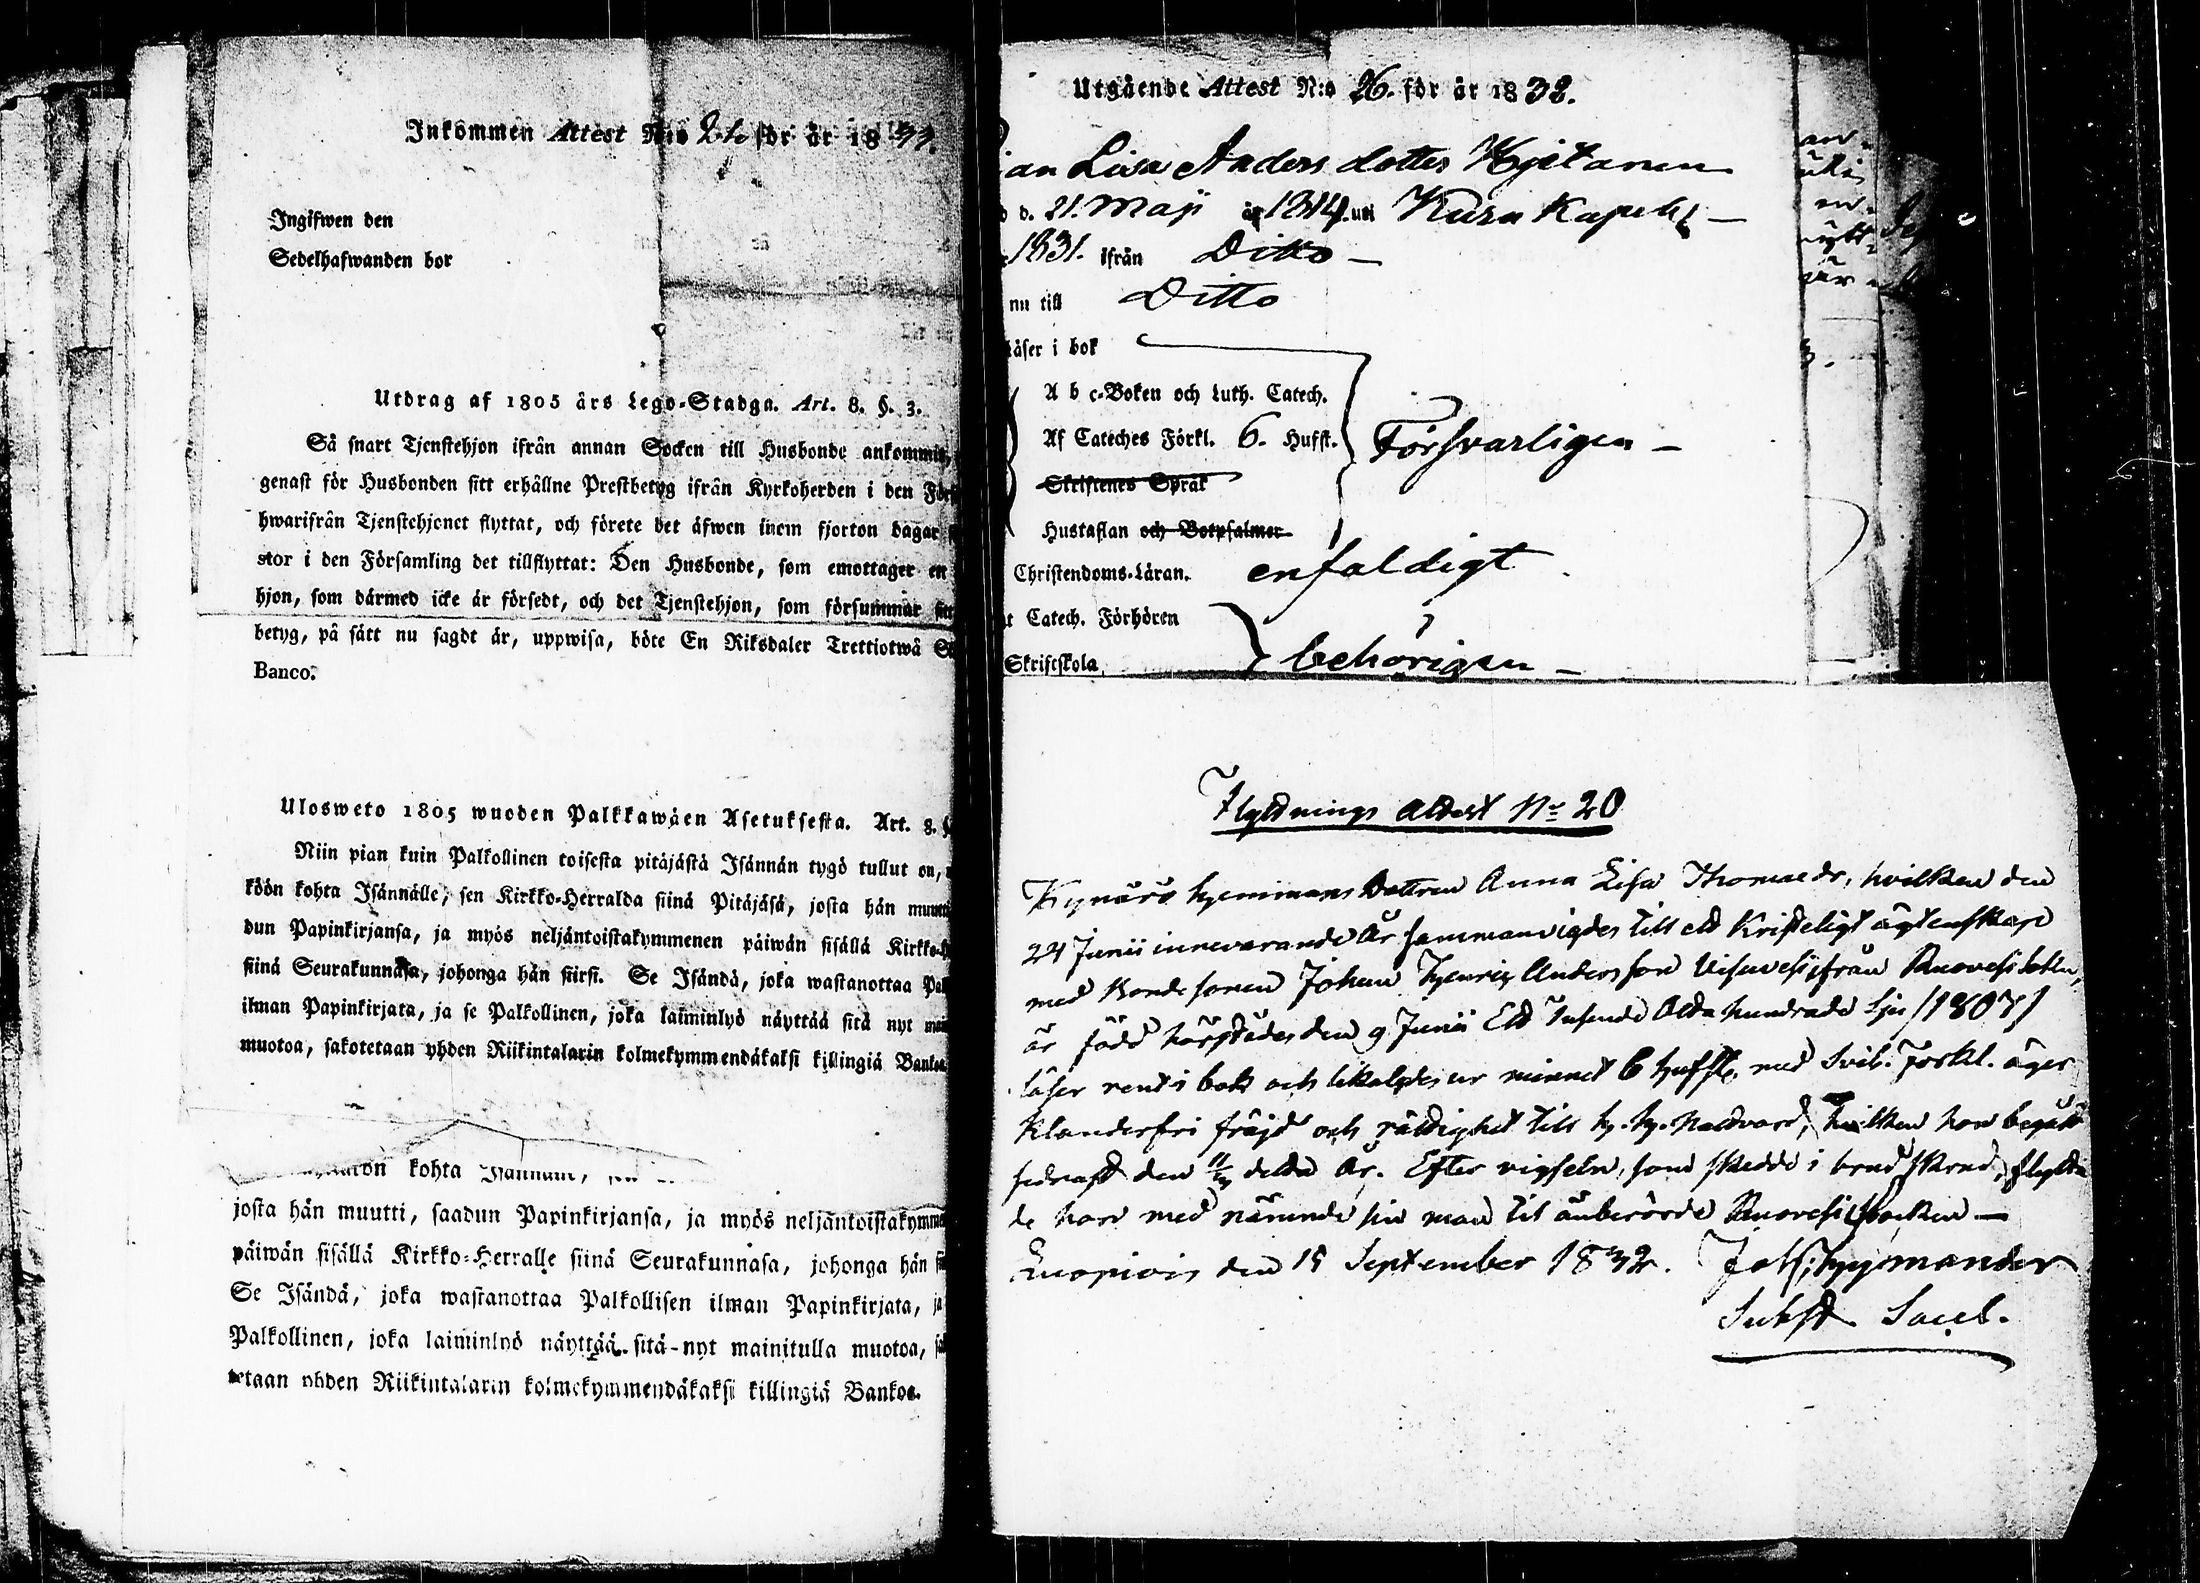 Inkommen Attest N:o för år 1833.
Ingifwen den
Sedelhafwanden bor
Utdrag af 1805 års Lego-Stadga. Art. 8. §. 3.
Så snart Tjenstehjon ifrån annan Socken till Husbonde ankommit,
genast för Husbonden sitt erhållne Prestbetyg ifrån Kyrkoherden i den För
hwarifrån Tjenstehjonet flyttat, och förete det äfwen inom fjorton dagar
stor i den Församling det tillflyttat: Den Husbonde, som emottager en
hjon, som därmed icke är försedt, och det Tjenstehjon, som försummar sitt
betyg, på sätt nu sagdt är, uppwisa, böte En Riksdaler Trettiotwå S
Banco.
Ulosweto 1805 wuoden Palkkawäen Asetuksesta. Art. 8. §
Niin pian kuin Palkollinen toisesta pitäjästä Isännän tygö tullut on,
köön kohta Isännälle, sen Kirkko-Herralda siinä Pitäjäsä, josta hän muutti
dun Papinkirjansa, ja myös neljäntoistakymmenen päiwän sisällä Kirkko-H
siinä Seurakunnasa, johonga hän siirsi. Se Isändä, joka wastanottaa Pal
ilman Papinkirjata, ja se Palkollinen, joka laiminlyö näyttää sitä nyt mai
muotoa, sakotetaan yhden Riikintalarin kolmekymmendäkaksi killingiä Bankoa
kohta Isännälle,
josta hän muutti, saadun Papinkirjansa, ja myös neljäntoistakymme
päiwän sisällä Kirkko-Herralle siinä Seurakunnasa, johonga hän sii
Se Isändä, joka wastanottaa Palkollisen ilman Papinkirjata, ja
Palkollinen, joka laiminlyö näyttää sitä-nyt mainitulla muotoa, sa
tetaan yhden Riikintalarin kolmekymmendäkaksi killingiä Bankoa.
Utgående Attest N:o 26. för år 1832.
an Lisa Anders dotter Hjetanen
d d. 21. Maji år 1814. uti Kuru Kapell
1831. ifrån Ditto
nu till Ditto
läser i bok
A b c-Boken och Luth. Catech.
Af Cateches Förkl. 6. Hufst. Försvarligen
Skriftenes Språk
Hustaflan och Botpsalmer
Christendoms-Läran. enfaldigt
t Catech. Förhören
Skriftskola, behörigen
Flyttnings attest No 20
Hemmans Dottren Anna Lisa Thomasdr, hvilken den
24 Junii innevarande År sammanvigdes till ett Kristeligt ägtenskap
med Bondesonen Johan Henric Andersson Visuvesi från Ruovesi sokn,
är född härstädes den 9 Junii Ett Tusende Åtta hundrade Sju /1807/
läser rent i bok och likaledes ur minnet 6 hufst. med Sveb. Förkl. äger
Klanderfri fräjd och rättighet till h. h. Nattvard, hvilken hon begått
sednast den detta År. Efter vigseln, som skedde i brudskrud, flytta
de hon med nämnde sin man til ånberörde Ruovesi Socken
Luopiois den 15 September 1832. Joh: Hymander
Subst. Sacel.